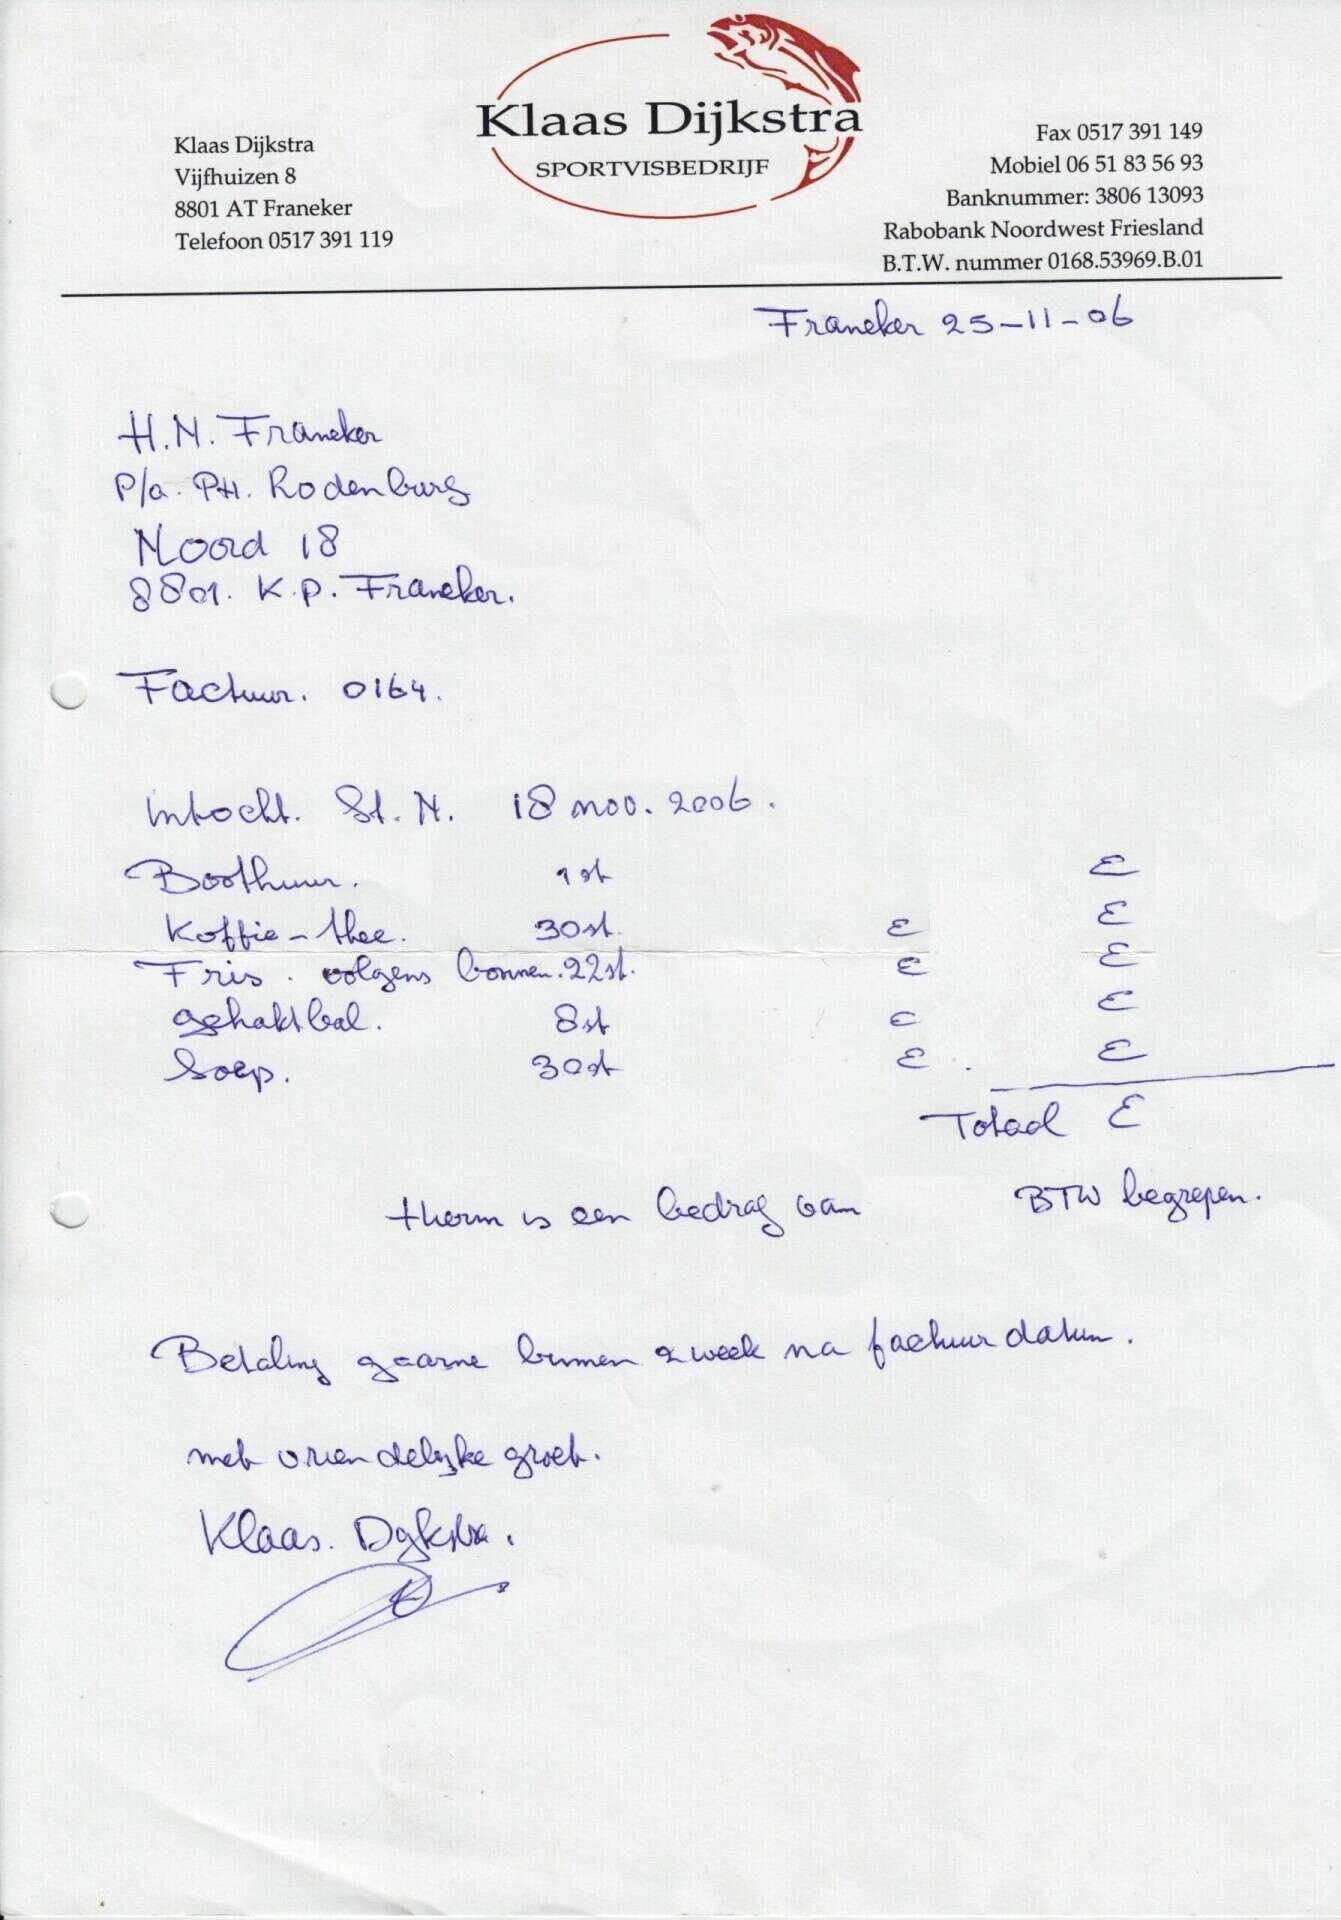 Klaas Dijkstra
SPORTVISBEDRIJF
Klaas Dijkstra
Vijfhuizen 8
8801 AT Franeker
Telefoon 0517 391 119
Fax 0517 391 149
Mobiel 06 51 83 56 93
Banknummer: 3806 13093
Rabobank Noordwest Friesland
B.T.W. nummer 0168.53969.B.01
Franeker 25-11-06
H.N. Franeker
P/a. PH. Rodenburg
Noord 18
8801. K.P. Franeker.
Factuur. 0164.
intocht. St. N. 18 nov. 2006.
Boothuur. 1st €
Koffie - thee. 30st. € €
Fris. volgens bonnen. 22st. € €
gehaktbal. 8st € €
Soep. 30st € €
Totaal €
is een bedrag van BTW begrepen.
Betaling gaarne binnen 2 week na factuur datum.
met vriendelijke groet.
Klaas. Dijkstra.